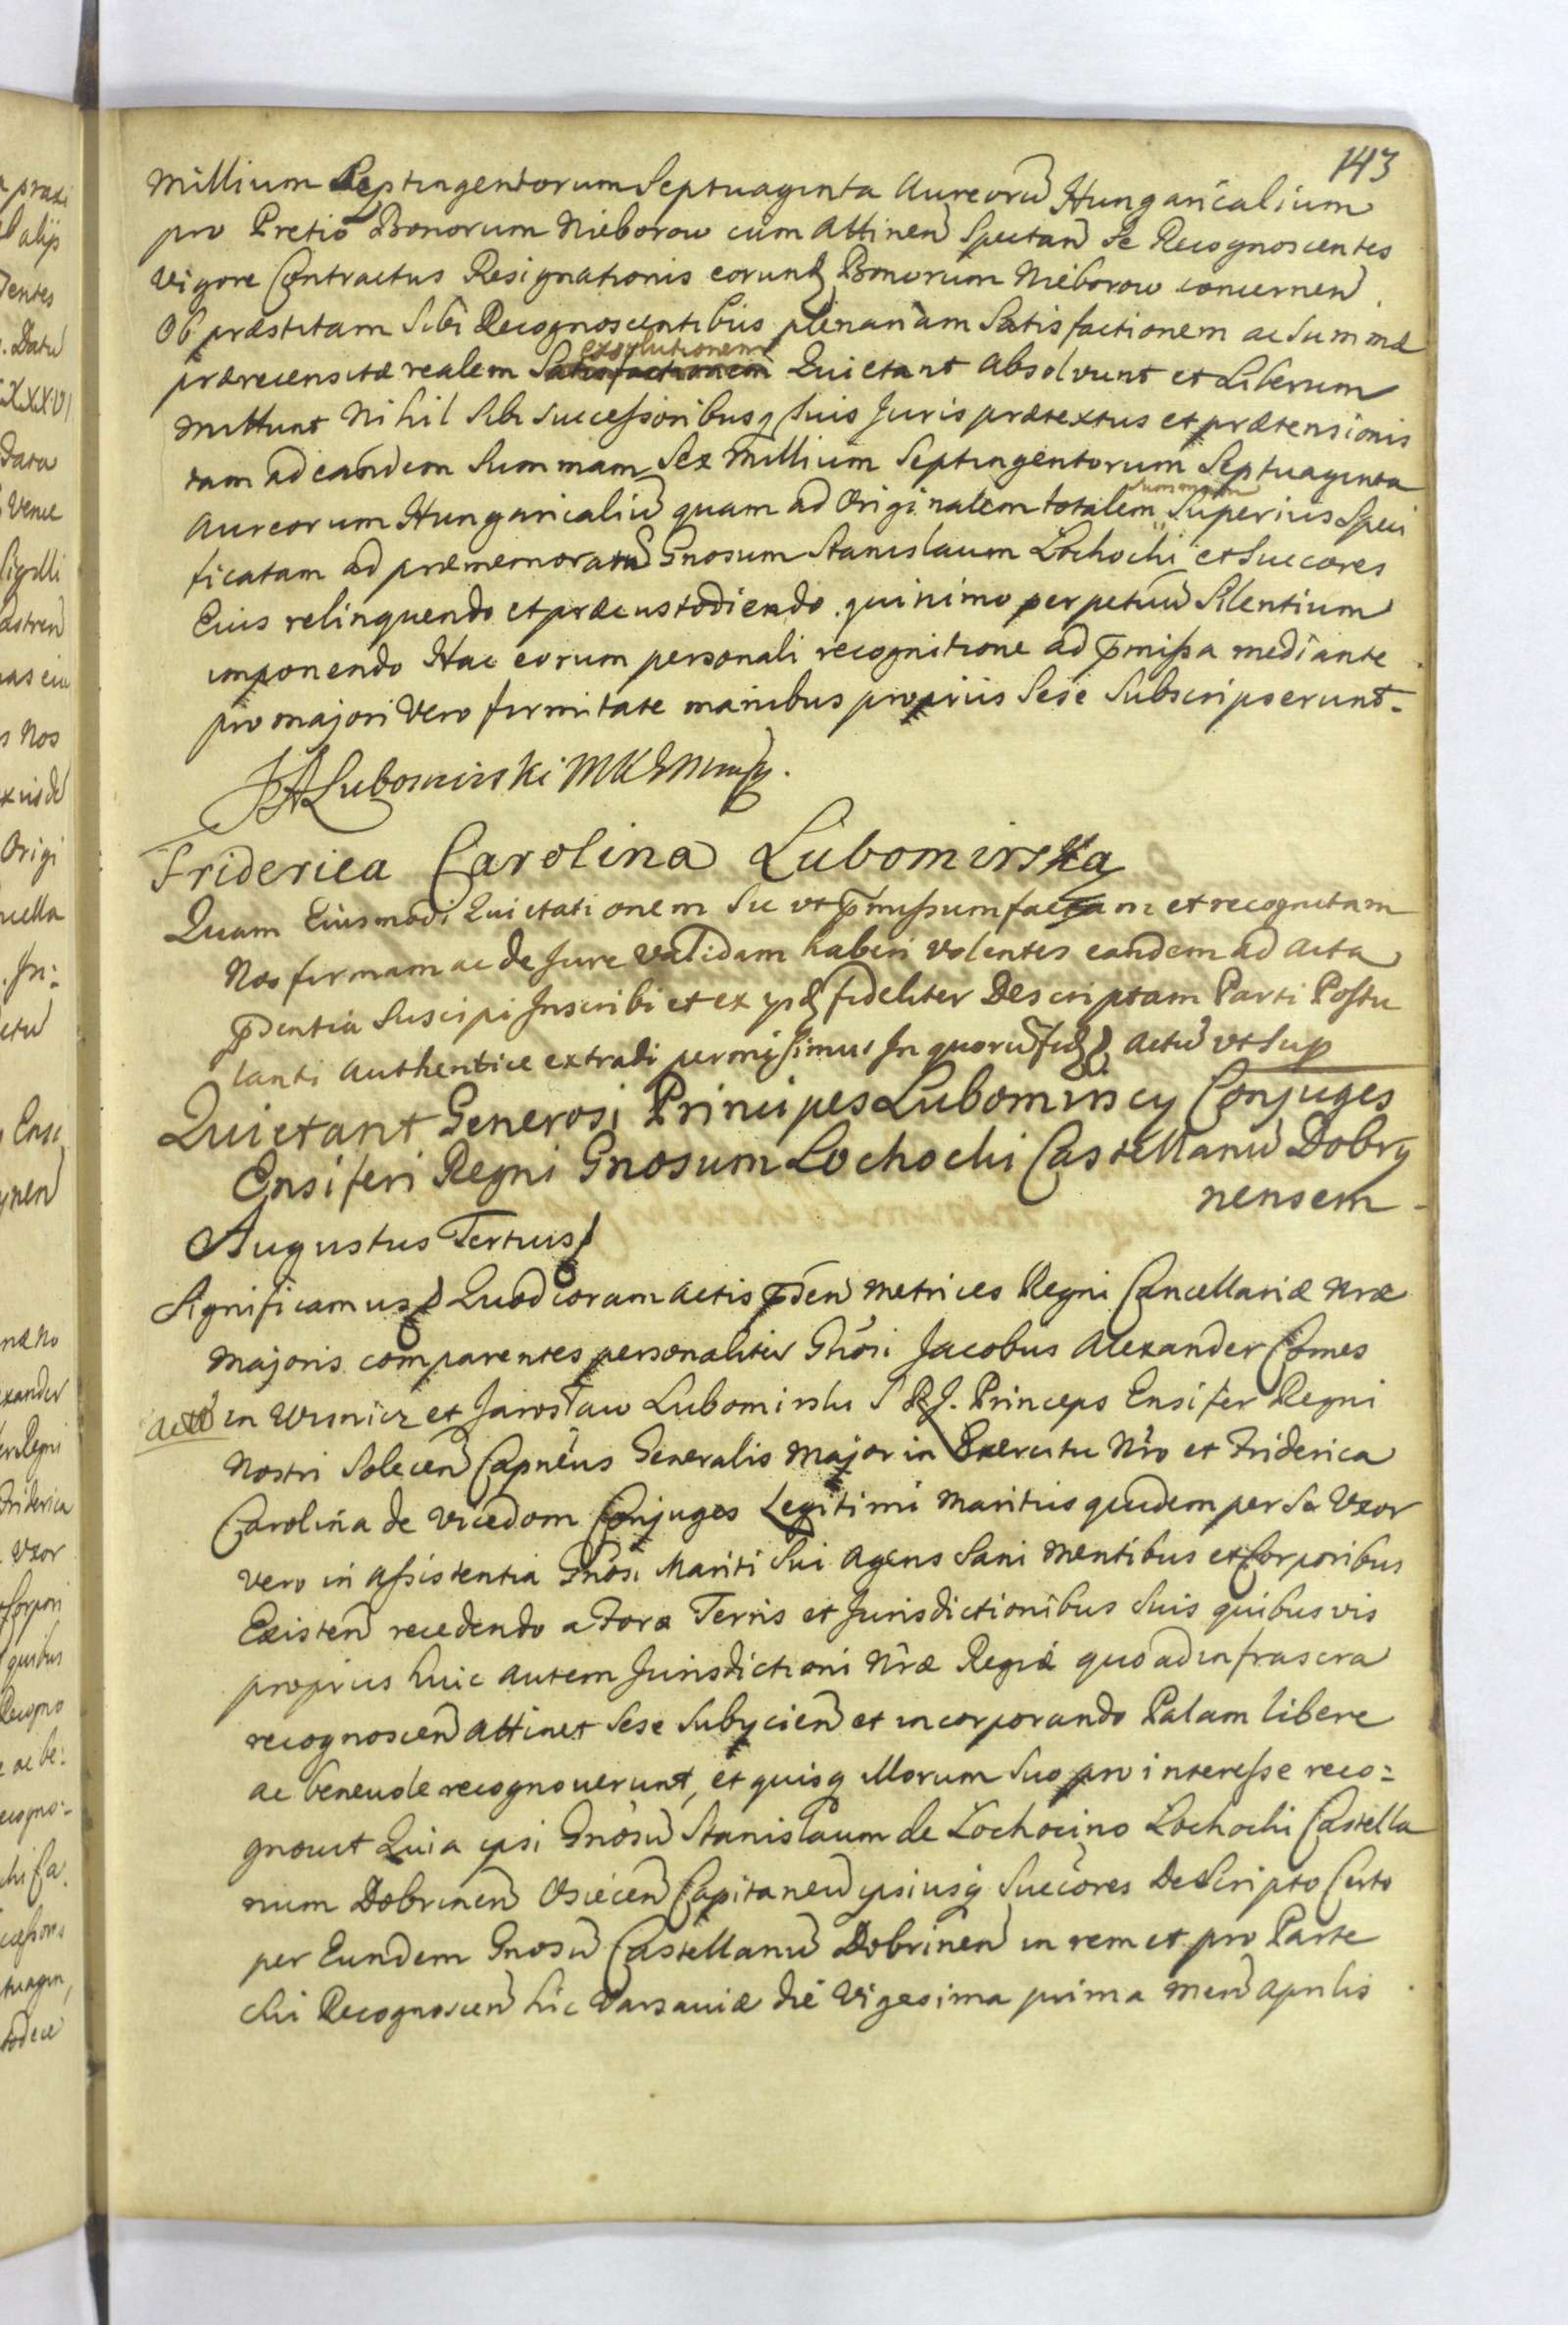 143
millium Septingentorum Septuaginta Aureorū Hungaricalium
pro Pretio Bonorum Nieborow cum Attinen Spectan Se Recognoscentes
vigore Contractus Resignationis eorund Bonorum Nieborow concernen
Ob præstitam Sibi Recognoscentibus plenariam Satisfactionem ac Summæ
exolutionem
prærecensitæ realem Satisfactionem Quietant Absolvunt et Liberum
mittunt Nihil Sibi Successoribusq Suis Juris prætextus et prætensionis
tam ad eandem Summam Sex Millium Septingentorum Septuaginta
Summam
Aureorum Hungaricaliū quam ad Originalem totalem Superius Speci
ficatam ad præmemoratū Gnosum Stanislaum Lochocki et Succores
Eius relinquendo et præcustodiendo. quinimo perpetuū Silentium
imponendo Hac eorum personali recognitione ad pmissa mediante
pro majori Vero firmitate manibus propriis Sese Subscripserunt.
JALubomirski MK
Friderica Carolina Lubomirska
Quam Eiusmodi Quietationem Sic ut pmissum factam et recognitam
Nos firmam ac de Jure Validam haberi volentes eandem ad Acta
pdentia Suscipi Inscribi et ex ysd fideliter Descriptam Parti Postu
lanti Authentice extradi permisimus In quorū fid Actū ut Sup
Quietant Generosi Principes Lubomirscy Conjuges
Ensiferi Regni Gnosum Lochocki Castellanū Dobry
nensem
Augustus Tertius
Significamus Quod coram Actis pden Metrices Regni Cancellariæ Nræ
Majoris comparentes personaliter Gnosi Jacobus Alexander Comes
in Wisnicz et Jarosław Lubomirski S R J. Princeps Ensifer Regni
Nostri Solecen Capneus Generalis Major in Exercitu Nro et Friderica
Carolina de Vicedom Conjuges Legitimi Maritus quidem per Se Uxor
vero in Assistentia Gnosi Mariti Sui Agens Sani Mentibus et Corporibus
Existen recedendo a Foro Terris et Jurisdictionibus Suis quibusvis
propriis huic autem Jurisdictioni Nræ Regiæ quo ad infrascra
recognoscen attinet Sese Subycien et incorporando Palam libere
ac benevole recognoverunt, et quisq illorum Suo pro interesse reco:
gnovit Quia ipsi Gnosū Stanisłaum de Lochocino Lochocki Castella
num Dobrinen Osiecen Capitaneū ipsiusq Succores De Scripto Certo
per Eundem Gnosū Castellanū Dobrinen in rem et pro Parte
Recognoscen hic Varsaviæ die Vigesima prima Men Aprilis